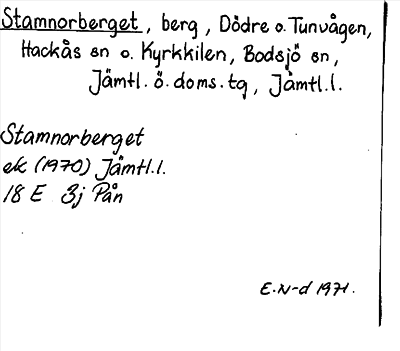 Stamnorberget, berg, Dödre o. Tunvågen,
Hackås sn o. Kyrkkilen, Bodsjö sn,
Jämtl. ö. doms. tg, Jämtl.l.
Stamnorberget
ek (1970) Jämtl.l.
18 E 3j Pån
E.N-d 1971.